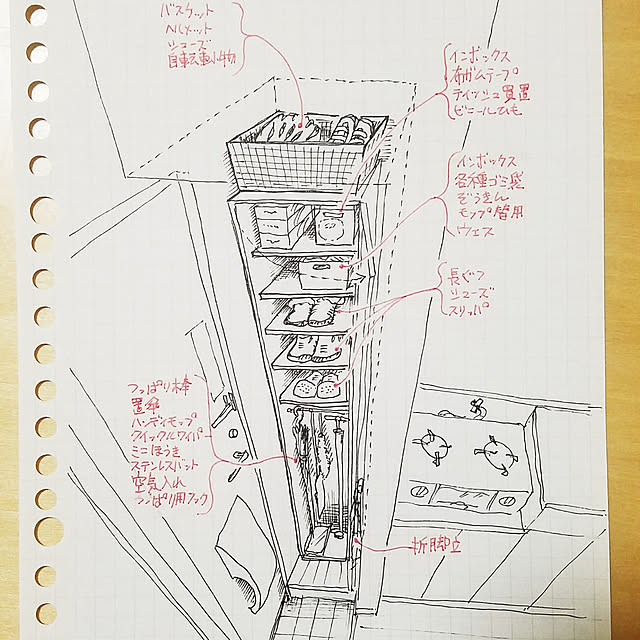 バスケット
ヘルメット
シューズ
自転車小物
インボックス
布ガムテープ
ティッシュ買置
ビニールひも
インボックス
各種ゴミ袋
ぞうきん
モップ替用
ウェス
長ぐつ
シューズ
スリッパ
つっぱり棒
置傘
ハンディモップ
クイックルワイパー
ミニほうき
ステンレスバット
空気入れ
つっぱり用フック
折脚立